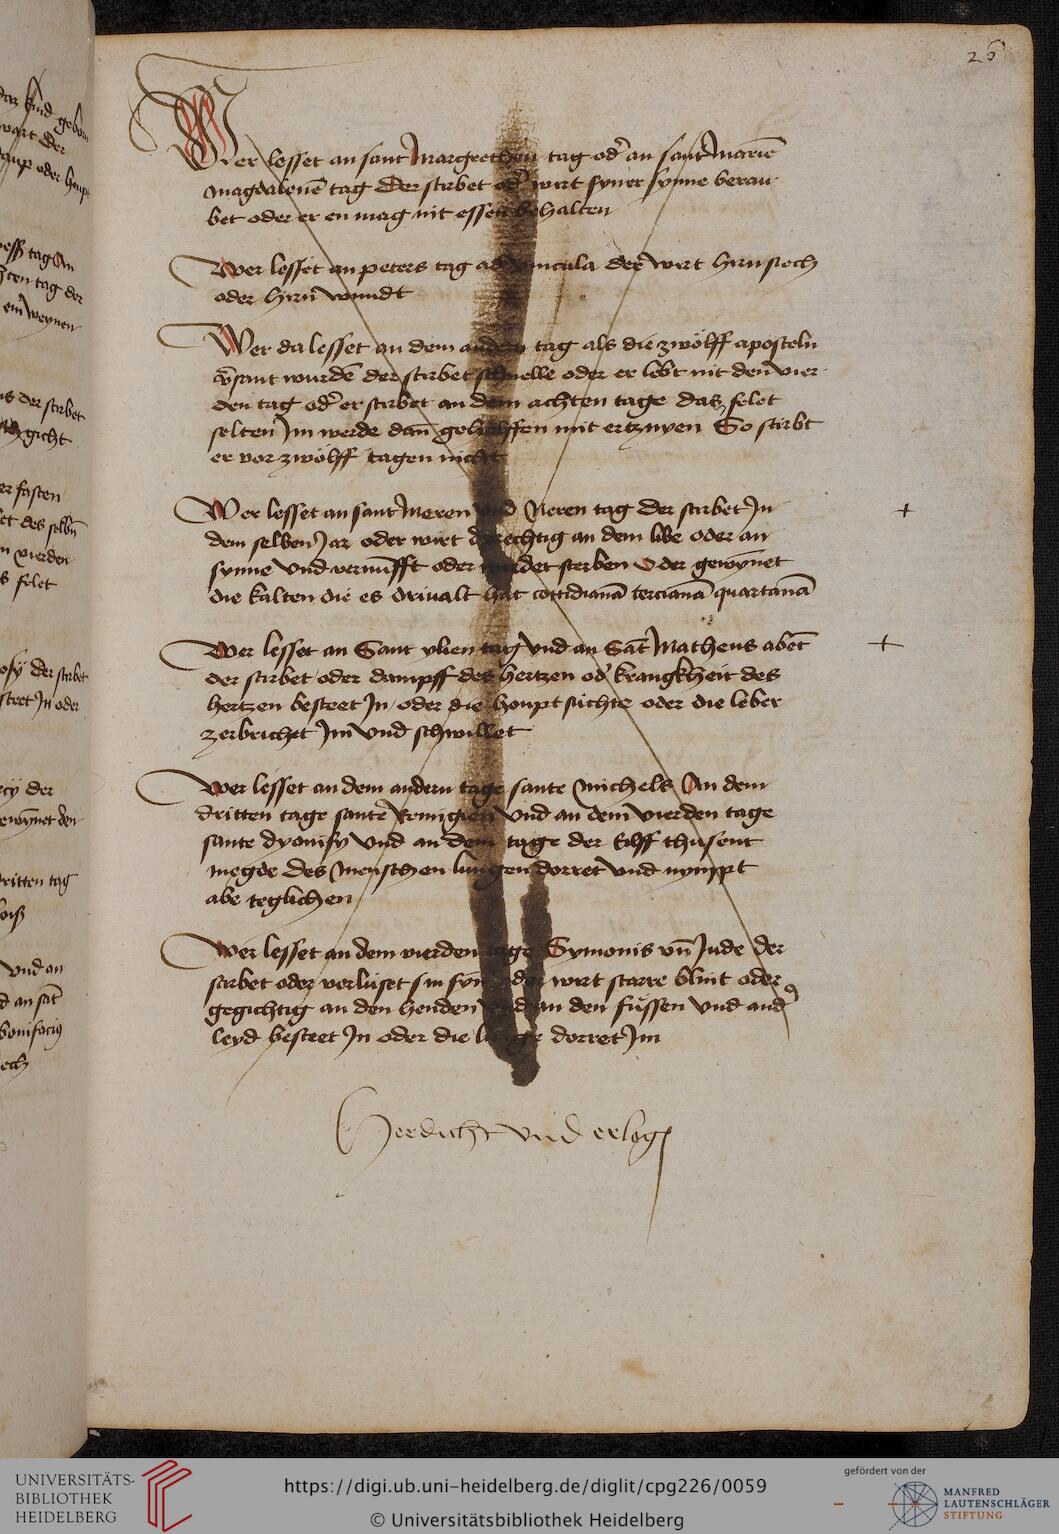 26
Wer lesset an sant Margrethen tag od' an sant Mariē
magdalenē tag Der stirbet od' wirt syner synne berau
bet oder er en mag nit essen behalten
Wer lesset an peters tag ad vincula der wirt hirnsiech
oder hirn wundt
Wer da lesset an dem andern tag als die zwölff aposteln
gesant wurdē der stirbet schnelle oder er lebt nit den vier
den tag od' er stirbet an dem achten tage das felet
selten Im werde dañ geholffen mit ertznyen So stirbt
er vor zwölff tagen nicht
Wer lesset an sant Meren und Neren tag der stirbet In
dem selben Jar oder wirt an dem libe oder an
synne Vnd vernūfft oder sterben Oder gewȳnet
die kalten die es drivalt hat cottidianā tercianā quartanā
Wer lesset an Sant ylien tag Vnd an Sāt Matheus abēt
der stirbet oder dampff des hertzen od' krangkheit des
hertzen besteet In oder die houpt suchte oder die leber
zerbrichet Im Vnd schwillet
Wer lesset an dem andern tage sante Michels An dem
dritten tage sante Remigien Vnd an dem vierden tage
sante dyonisy Vnd an dem tage der Eilff thusent
megde des Menschen lungen dorret Vnd nympt
abe teglichen
Wer lesset an dem vierden tage Symonis vñ Jude der
stirbet oder verlüset sin syn oder wirt starre blint oder
gegichtig an den henden Vnd an den füssen Vnd and'
leyd besteet In oder die lunge dorret Im
Gerdicht vnd erlog
UNIVERSITÄTS-
BIBLIOTHEK
HEIDELBERG
https://digi.ub.uni-heidelberg.de/diglit/cpg226/0059
© Universitätsbibliothek Heidelberg
gefördert von der
MANFRED
LAUTENSCHLÄGER
STIFTUNG